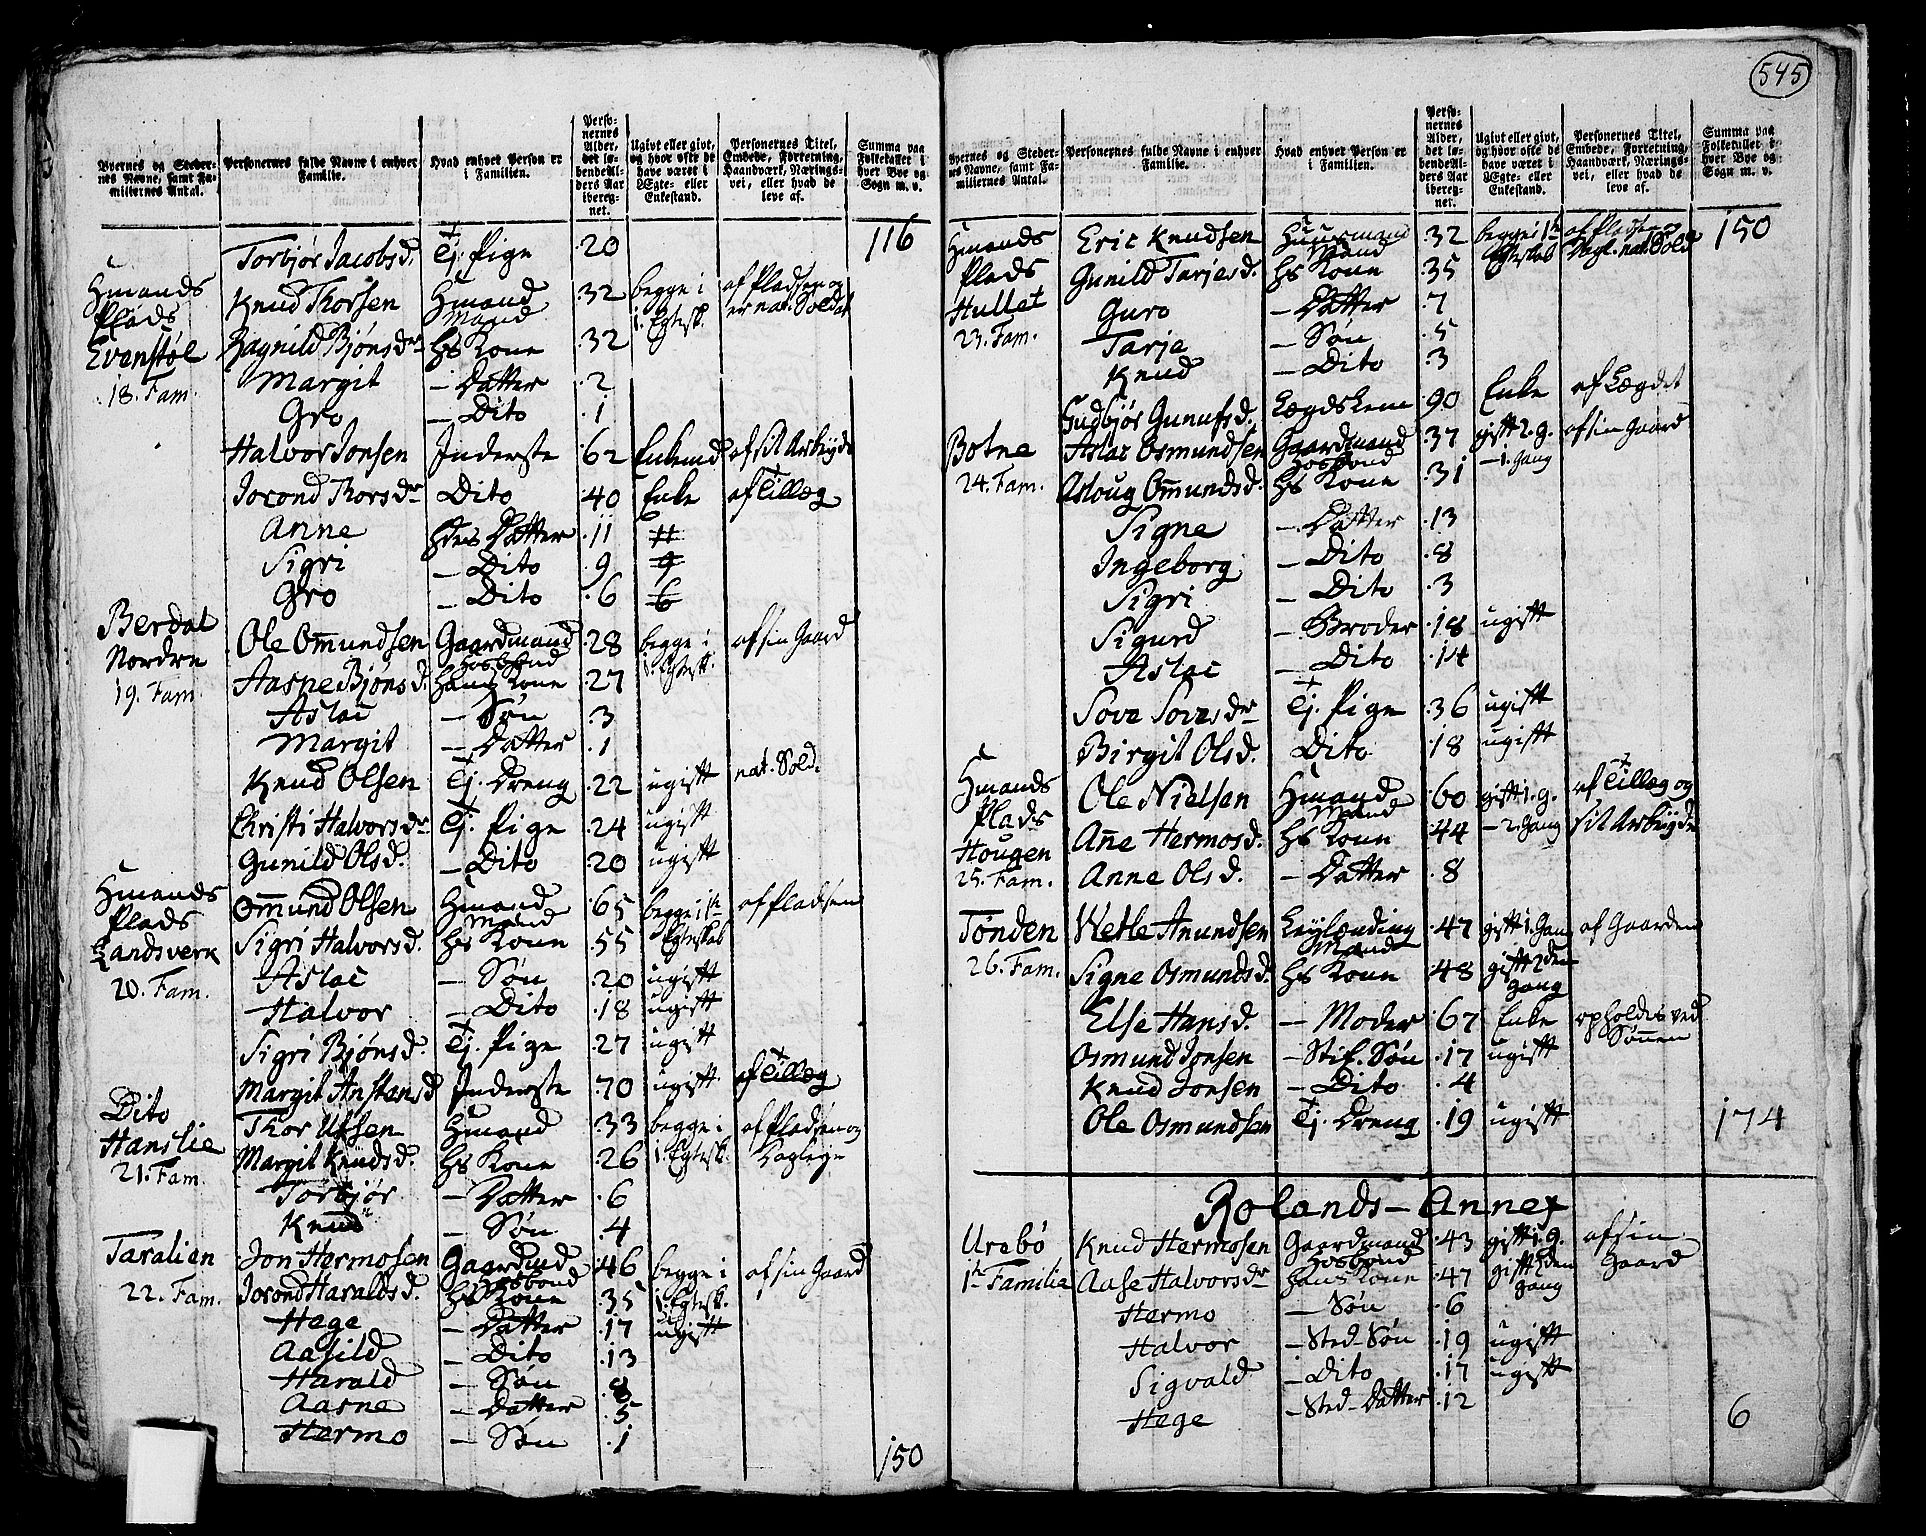 545
Byernes og Stedernes Navne, samt Familiernes Antal.
Personernes fulde Navne i enhver Familie.
Hvad enhver Person er i Familien.
Personernes Alder, det løbende Alders Aar iberegnet.
Ugivt eller givt, og hvor ofte de have været i Ægte- eller Enkestand.
Personernes Titel, Embede, Forretning, Haandværk, Næringsvei, eller hvad de leve af.
Summa paa Folketallet i hver Bye og Sogn m. v.
Torbjør Jacobsd. Tj. Pige 20 116
Hmands Plads Evenstøl 18. Fam.
Knud Thorsen Hmand Mand 32 begge i 1. Egtesk. af Pladsen og er nat. Soldat
Ragnild Bjønsdr Hs Kone 32
Margit – Datter 2
Gro – Dito 1
Halvor Jonsen Inderste 62 Enkemd af sit Arbeyde
Jorond Thorsdr Dito 40 Enke af Tillæg
Anne Hdes Datter 11
Sigri – Dito 9
Gro – Dito 6
Berdal Nordre 19. Fam.
Ole Omundsen Gaardmand Hosbond 28 begge i 1. Egtesk. af sin Gaard
Aasne Bjønsd. Hans Kone 27
Aslac – Søn 3
Margit – Datter 1
Knud Olsen Tj. Dreng 22 ugift nat. Sold.
Christi Halvorsdr Tj. Pige 24 ugift
Gunild Olsd. – Dito 20 ugift
Hmands Plads Landsverk 20. Fam.
Omund Olsen Hmand Mand 65 begge i 1te Egteskab af Pladsen
Sigri Halvorsd. Hs Kone 55
Aslac – Søn 20 ugift
Halvor – Dito 18 ugift
Sigri Bjønsd. Tj. Pige 27 ugift
Margit Anstensd Inderste 70 ugift af Tillæg
Dito Hanslie 21. Fam.
Thor Ufsen Hmand 33 begge i 1. Egtesk. af Pladsen og Dagleye
Margit Knudsd. Hs Kone 26
Torbjør – Datter 6
Knud – Søn 4
Taralien 22. Fam.
Jon Hermosen Gaardmd Hosbond 46 begge i 1. Egtesk. af sin Gaard
Jorond Haraldsd. Hs Kone 35
Hege – Datter 17 ugift
Aasild – Dito 13
Harald – Søn 8
Aasne – Datter 5
Hermo – Søn 1
150
Byernes og Stedernes Navne, samt Familiernes Antal.
Personernes fulde Navne i enhver Familie.
Hvad enhver Person er i Familien.
Personernes Alder, det løbende Alders Aar iberegnet.
Ugivt eller givt, og hvor ofte de have været i Ægte- eller Enkestand.
Personernes Titel, Embede, Forretning, Haandværk, Næringsvei, eller hvad de leve af.
Summa paa Folketallet i hver Bye og Sogn m. v.
Hmands Plads Hullet 23. Fam.
Eric Knudsen Huusmand Mand 32 begge i 1te Egteskab af Pladsen nat. Sold 150
Gunild Tarjesd. Hs Kone 35
Guro – Datter 7
Tarje – Søn 5
Knud – Dito 3
Gudbjør Gunufsd. Lægdslem 90 Enke af Lægdet
Botne 24. Fam.
Aslac Osmundsen Gaardmand Hosbond 37 gift 2. g. af sin Gaard
Asloug Omundsd. Hs Kone 31 – 1. Gang
Signe – Datter 13
Ingeborg – Dito 8
Sigri – Dito 3
Sigurd – Broder 18 ugift
Aslac – Dito 14
Sove Sovesdr Tj. Pige 36 ugift
Birgit Olsd. Dito 18 ugift
Hmands Plads Hougen 25. Fam.
Ole Nielsen Hmand Mand 60 gift 1. g. af Tillæg og
Anne Hermosd. Hs Kone 44 – 2. Gang sit Arbeyde
Anne Olsd. – Datter 8
Tønden 26. Fam.
Wetle Anundsen Leylænding Mand 47 gift 1. Gan af Gaarden
Signe Osmundsd. Hs Kone 48 gift 2den Gang
Else Hansd. – Moder 67 Enke opholdes ved Sønnen
Osmund Jonsen – Stif. Søn 17 ugift
Knud Jonsen – Dito 4
Ole Osmundsen Tj. Dreng 19 ugift 174
Rolands – Annex
Urebø 1te Familie
Knud Hermosen Gaardmand Hosbond 43 gift 1. g. af sin Gaard
Aase Halvorsdr Hans Kone 47 gift 2den Gang
Hermo – Søn 6
Halvor – Sted-Søn 19 ugift
Sigvald – Dito 17 ugift
Hege – Sted-Datter 12
6